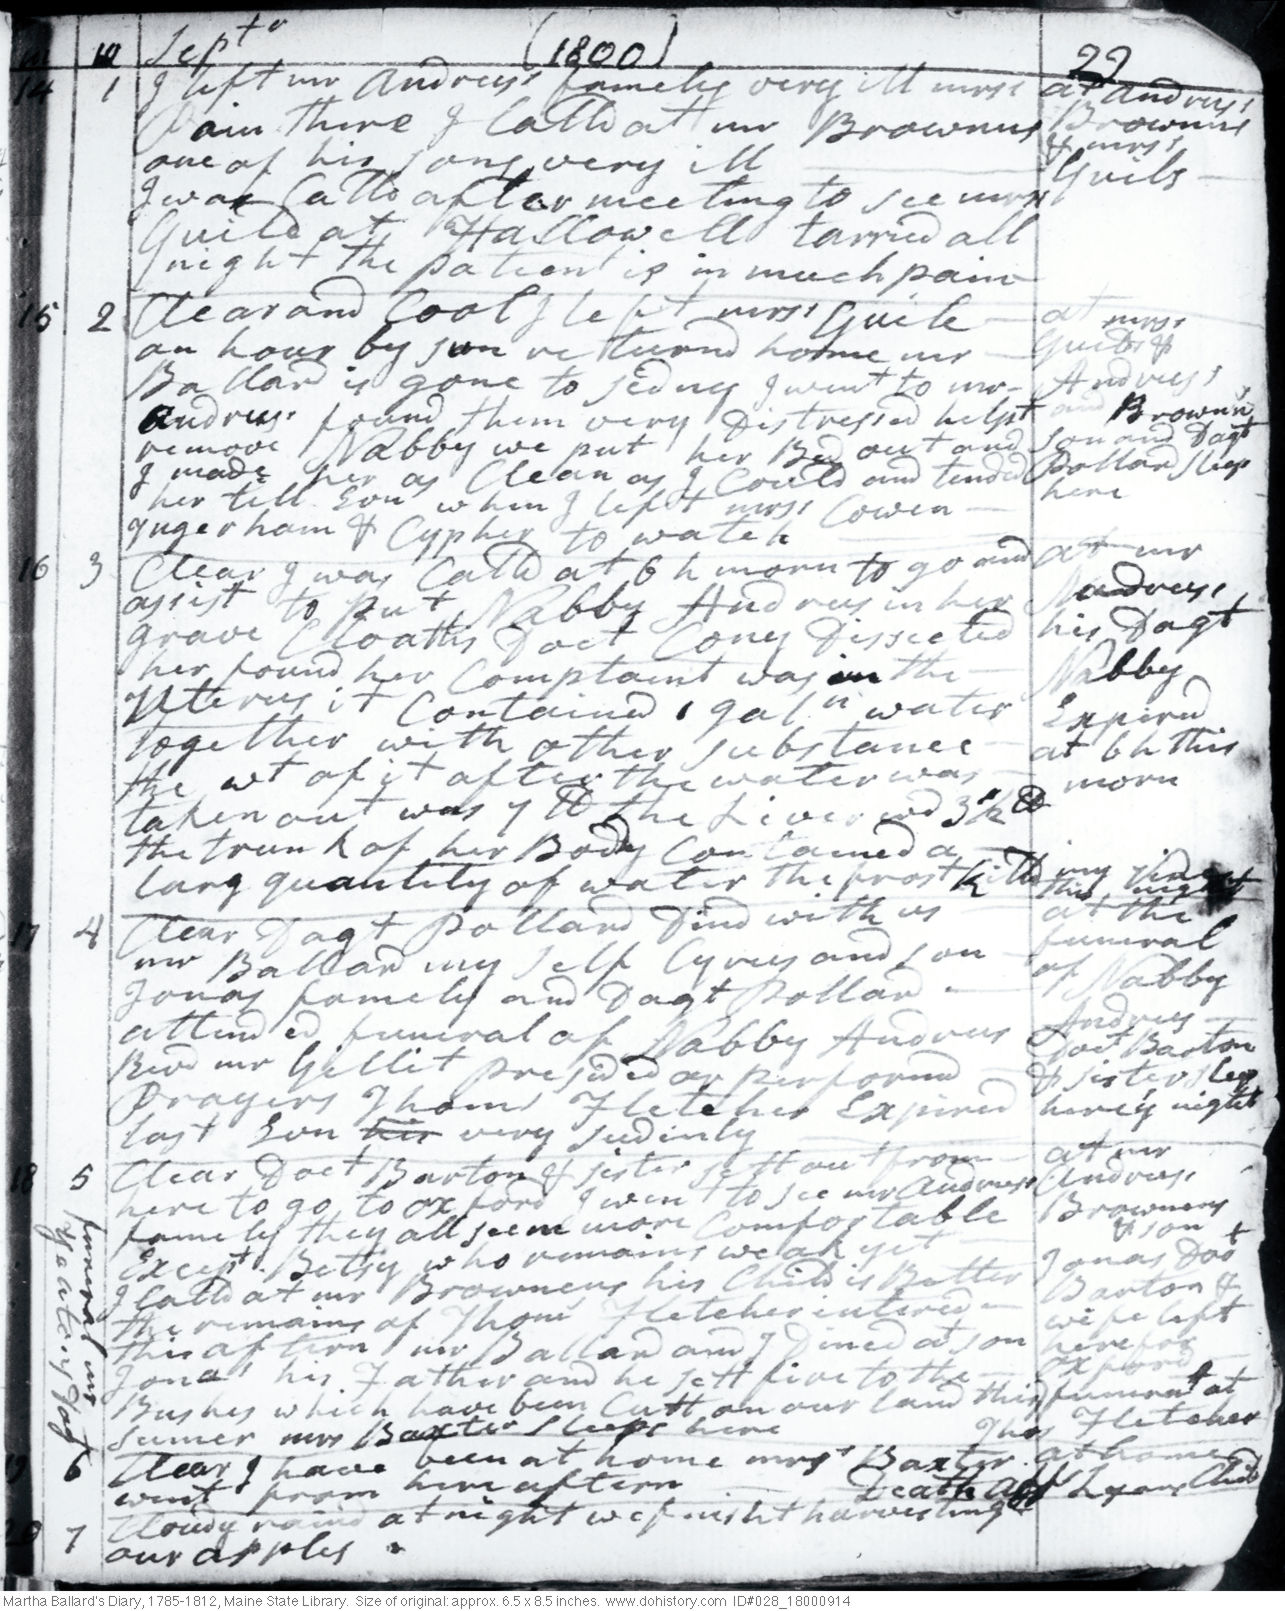 10 Septr (1800) 22
14 1 I left mr Andrus' famely very ill mrs
Pain there I Calld at mr Brownns
one of his sons very ill
I was Calld after meeting to see mrs
Guild at Hallowell tarried all
night the patient is in much pain
at Andruss
Brownns
& mrs
Guils
15 2 Clear and Cool I left mrs Guile
an hour by sun returnd home mr
Ballard is gone to Sidney I went to mr
Andrus' found them very Distressd helpt
remoove Nabby we put her Bed out and
I made her as Clean as I Could and tended
her till Evn when I left mrs Cowen
Ingerham & Cypher to watch
at mrs
Guilds &
Andruss
and Brownn
son and Dagt
Pollard sleep
here
16 3 Clear I was Calld at 6 h morn to go and
assist to put Nabby Andrus in her
grave Cloaths Doct Coney Dissected
her found her Complaint was in the
Uterus it Contained 1 galn water
together with other substance
the wt of it after the water was
taken out was 7 lb the Liver wd 3½ lb
the trunk of her Body Contained a
larg quantity of water the frost killd my vines
this night
at mr
Andruss
his Dagt
Nabby
Expird
at 6 h this
morn
17 4 Clear Dagt Pollard Dind with us
mr Ballard my self Cyrus and son
Jonas famely and Dagt Pollard
attended funeral of Nabby Andrus
Revd mr Gillit presided as performd
Prayers Thoms Fletcher Expired
last Evn his very sudinly
at the
funeral
of Nabby
Andrus
Doct Barton
& sister sleep
here night
18 5 Clear Doct Barton & sister sett out from
here to go to oxford I went to see mr Andruss
famely they all seem more Comfortable
Except Betsy who remains weak yet
I Calld at mr Browneng his Child is Better
the remains of Thoms Fletcher intered
this aftern mr Ballard and I Dined at son
Jonas his Father and he sett fire to the
Bushes which have been Cutt on our land this
sumer mrs Baxter sleeps here
at mr
Andruss
Browneng
& son
Jonas Doct
Barton &
wife left
here for
oxford
funeral at
Thos Fletcher
funeral mr
19 6 Clear I have been at home mrs Baxter
went from here aftern
at home
Death of Lyons Child
20 7 Cloudy raind at night we finisht harvesting
our apples
Martha Ballard's Diary, 1785-1812, Maine State Library. Size of original: approx. 6.5 x 8.5 inches. www.dohistory.com ID#028_18000914